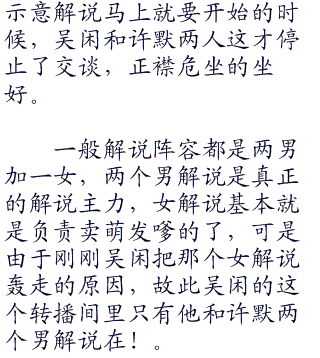 示意解说马上就要开始的时
候，吴闲和许默两人这才停
止了交谈，正襟危坐的坐
好。
一般解说阵容都是两男
加一女，两个男解说是真正
的解说主力，女解说基本就
是负责卖萌发嗲的了，可是
由于刚刚吴闲把那个女解说
轰走的原因，故此吴闲的这
个转播间里只有他和许默两
个男解说在！。